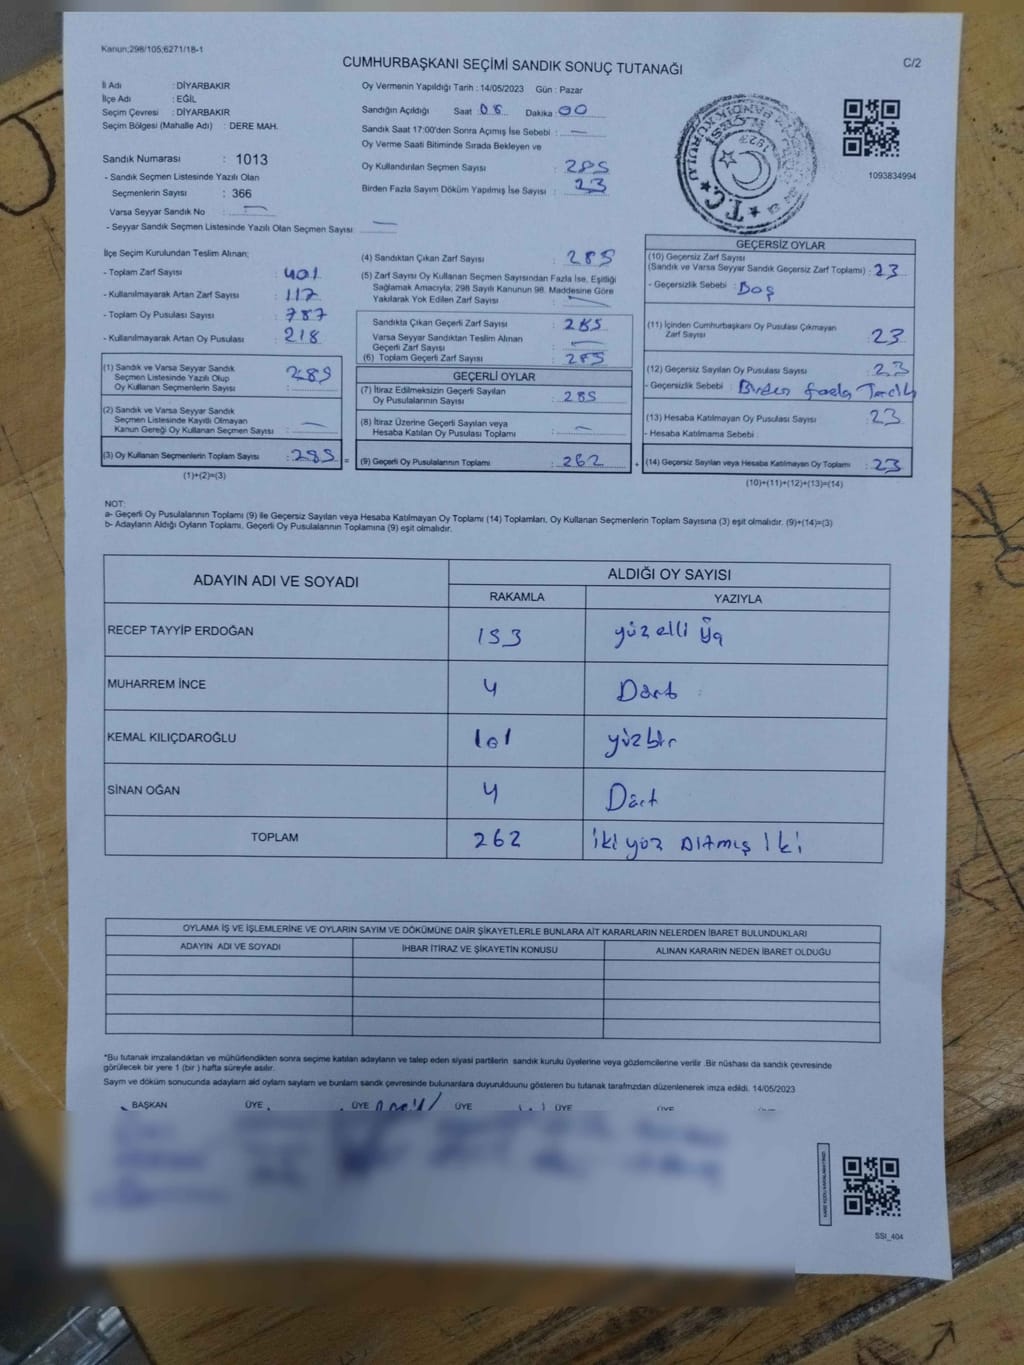 Kanun;298/105;6271/18-1
C/2
CUMHURBAŞKANI SEÇİMİ SANDIK SONUÇ TUTANAĞI
İl Adı : DİYARBAKIR
İlçe Adı : EĞİL
Seçim Çevresi : DİYARBAKIR
Seçim Bölgesi (Mahalle Adı) : DERE MAH.
Sandık Numarası : 1013
- Sandık Seçmen Listesinde Yazılı Olan
Seçmenlerin Sayısı : 366
Varsa Seyyar Sandık No : —
- Seyyar Sandık Seçmen Listesinde Yazılı Olan Seçmen Sayısı —
Oy Vermenin Yapıldığı Tarih : 14/05/2023 Gün : Pazar
Sandığın Açıldığı Saat 08 Dakika 00
Sandık Saat 17:00'den Sonra Açımış İse Sebebi : —
Oy Verme Saati Bitiminde Sırada Bekleyen ve
Oy Kullandırılan Seçmen Sayısı : 285
Birden Fazla Sayım Döküm Yapılmış İse Sayısı : 23
T.C.
1923
1093834994
İlçe Seçim Kurulundan Teslim Alınan;
- Toplam Zarf Sayısı : 401
- Kullanılmayarak Artan Zarf Sayısı : 117
- Toplam Oy Pusulası Sayısı : 787
- Kullanılmayarak Artan Oy Pusulası : 218
(1) Sandık ve Varsa Seyyar Sandık
Seçmen Listesinde Yazılı Olup
Oy Kullanan Seçmenlerin Sayısı : 285
(2) Sandık ve Varsa Seyyar Sandık
Seçmen Listesinde Kayıtlı Olmayan
Kanun Gereği Oy Kullanan Seçmen Sayısı : —
(3) Oy Kullanan Seçmenlerin Toplam Sayısı : 285 =
(1)+(2)=(3)
(4) Sandıktan Çıkan Zarf Sayısı : 285
(5) Zarf Sayısı Oy Kullanan Seçmen Sayısından Fazla İse, Eşitliği
Sağlamak Amacıyla; 298 Sayılı Kanunun 98. Maddesine Göre
Yakılarak Yok Edilen Zarf Sayısı : —
Sandıkta Çıkan Geçerli Zarf Sayısı : 285
Varsa Seyyar Sandıktan Teslim Alınan
Geçerli Zarf Sayısı : —
(6) Toplam Geçerli Zarf Sayısı : 285
GEÇERLİ OYLAR
(7) İtiraz Edilmeksizin Geçerli Sayılan
Oy Pusulalarının Sayısı : 285
(8) İtiraz Üzerine Geçerli Sayılan veya
Hesaba Katılan Oy Pusulası Toplamı : —
(9) Geçerli Oy Pusulalarının Toplamı : 262 +
GEÇERSİZ OYLAR
(10) Geçersiz Zarf Sayısı
(Sandık ve Varsa Seyyar Sandık Geçersiz Zarf Toplamı) : 23
- Geçersizlik Sebebi : Boş
(11) İçinden Cumhurbaşkanı Oy Pusulası Çıkmayan
Zarf Sayısı : 23
(12) Geçersiz Sayılan Oy Pusulası Sayısı : 23
- Geçersizlik Sebebi : Birden fazla Tercih
(13) Hesaba Katılmayan Oy Pusulası Sayısı : 23
- Hesaba Katılmama Sebebi
(14) Geçersiz Sayılan veya Hesaba Katılmayan Oy Toplamı : 23
(10)+(11)+(12)+(13)=(14)
NOT:
a- Geçerli Oy Pusulalarının Toplamı (9) ile Geçersiz Sayılan veya Hesaba Katılmayan Oy Toplamı (14) Toplamları, Oy Kullanan Seçmenlerin Toplam Sayısına (3) eşit olmalıdır. (9)+(14)=(3)
b- Adayların Aldığı Oyların Toplamı, Geçerli Oy Pusulalarının Toplamına (9) eşit olmalıdır.
ADAYIN ADI VE SOYADI ALDIĞI OY SAYISI
RAKAMLA YAZIYLA
RECEP TAYYİP ERDOĞAN 153 yüz elli üç
MUHARREM İNCE 4 Dört
KEMAL KILIÇDAROĞLU 101 yüzbir
SİNAN OĞAN 4 Dört
TOPLAM 262 iki yüz Altmış iki
OYLAMA İŞ VE İŞLEMLERİNE VE OYLARIN SAYIM VE DÖKÜMÜNE DAİR ŞİKAYETLERLE BUNLARA AİT KARARLARIN NELERDEN İBARET BULUNDUKLARI
ADAYIN ADI VE SOYADI İHBAR İTİRAZ VE ŞİKAYETİN KONUSU ALINAN KARARIN NEDEN İBARET OLDUĞU
*Bu tutanak imzalandıktan ve mühürlendikten sonra seçime katılan adayların ve talep eden siyasi partilerin sandık kurulu üyelerine veya gözlemcilerine verilir .Bir nüshası da sandık çevresinde
görülecek bir yere 1 (bir ) hafta süreyle asılır.
Sayım ve döküm sonucunda adayların ald oylam saylarm ve bunlarm sandk çevresinde bulunanlara duyurulduunu gösteren bu tutanak tarafmzdan düzenlenerek imza edildi. 14/05/2023
BAŞKAN ÜYE ÜYE ÜYE ÜYE ÜYE
SSI_404